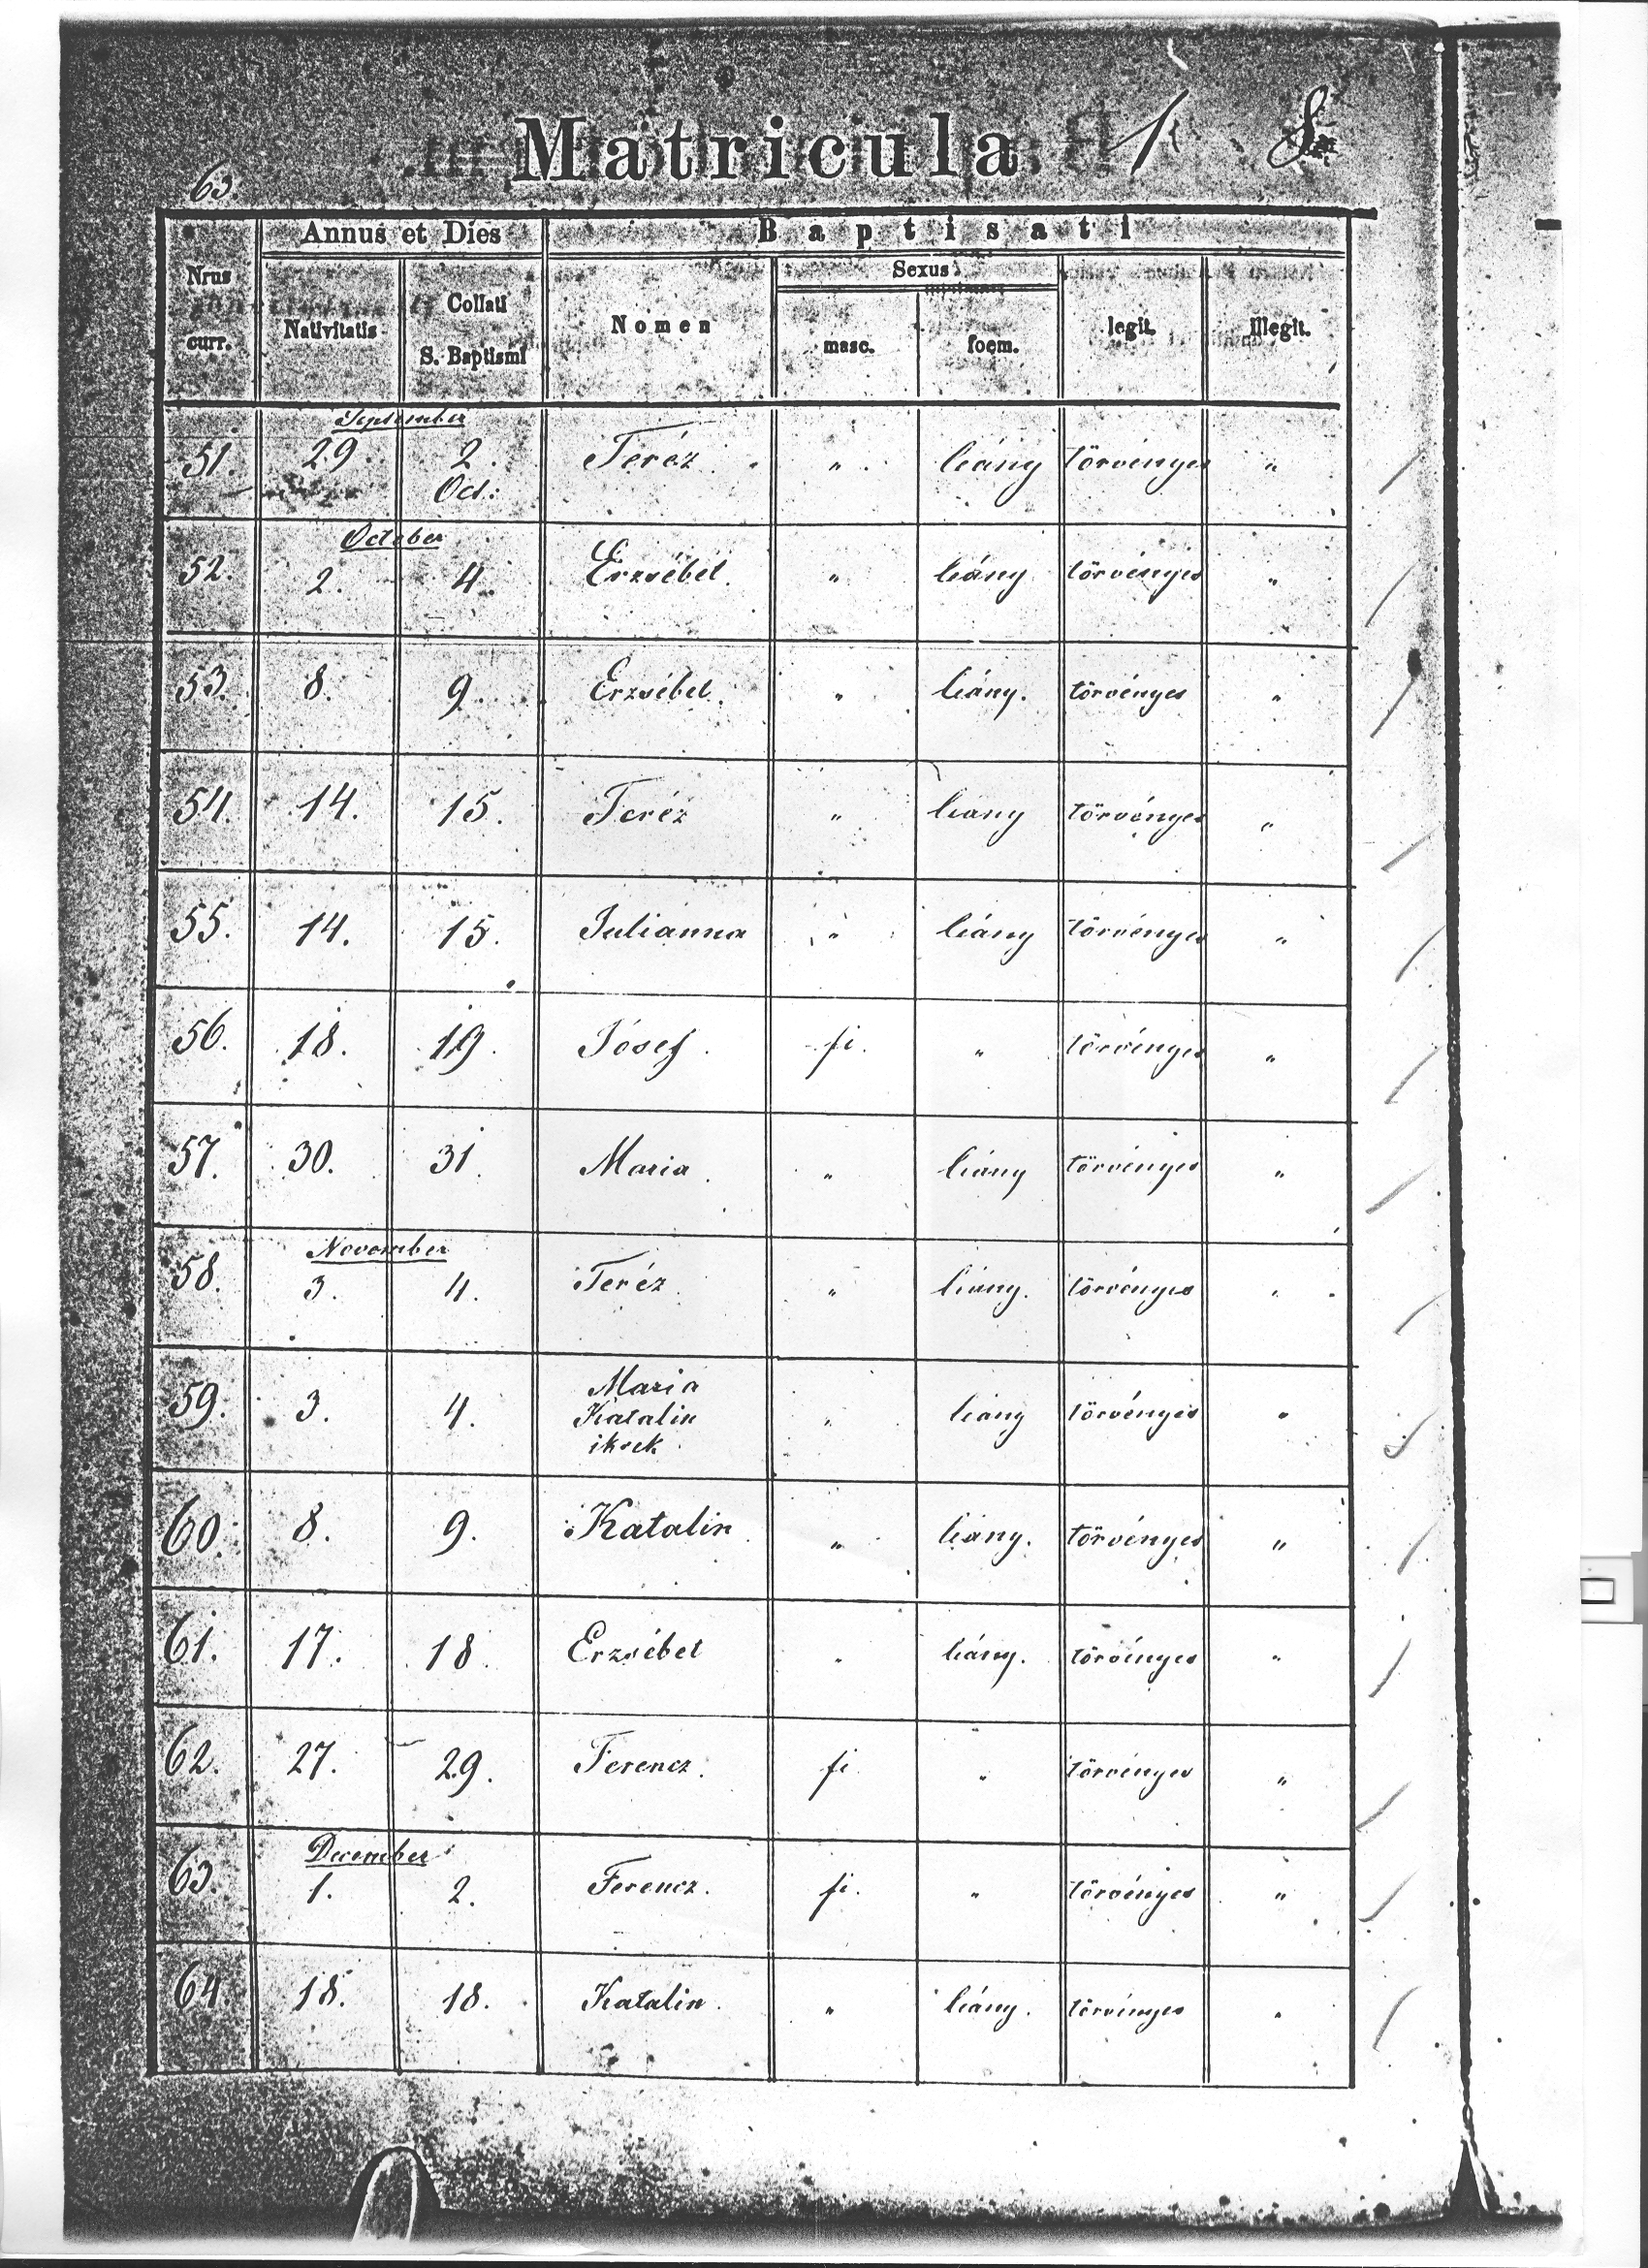 Matricula
63.
Annus et Dies
Baptisati
Nrus curr.
Nativitatis
Collati S. Baptismi
Nomen
Sexus
masc.
foem.
legit.
illegit.
September
51. 29. 2. Teréz „ leány törvényes „
Oct.:
October
52. 2. 4. Erzsébet. „ leány törvényes „
53. 8. 9. Erzsébet. „ leány. törvényes „
54. 14. 15. Teréz „ leány törvényes „
55. 14. 15. Julianna „ leány törvényes „
56. 18. 19. Jósef. fi. „ törvényes „
57. 30. 31. Maria. „ leány törvényes „
November
58. 3. 4. Teréz. „ leány. törvényes „
Maria
59. 3. 4. Katalin „ leány törvényes „
ikrek
60. 8. 9. Katalin. „ leány. törvényes „
61. 17. 18. Erzsébet „ leány. törvényes „
62. 27. 29. Ferencz. fi. „ törvényes „
December
63. 1. 2. Ferencz. fi. „ törvényes „
64. 18. 18. Katalin. „ leány. törvényes „